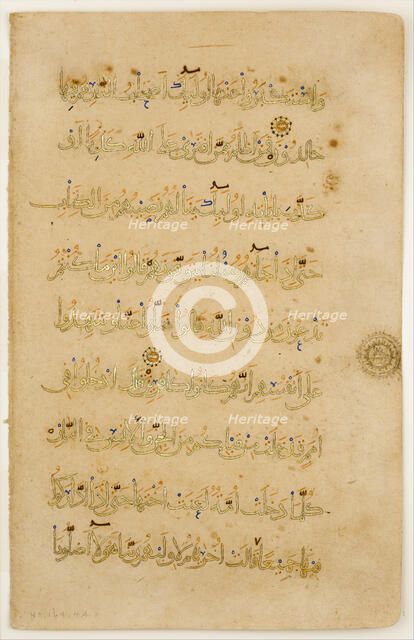 واستكبروا عنها اولئك اصحاب النار هم فيها
خالدون فمن اظلم ممن افترى على الله كذبا او
كذب باياته اولئك ينالهم نصيبهم من الكتاب
حتى اذا جاءتهم رسلنا يتوفونهم قالوا اين ما كنتم
تدعون من دون الله قالوا ضلوا عنا وشهدوا
على انفسهم انهم كانوا كافرين قال ادخلوا في
امم قد خلت من قبلكم من الجن والانس في النار
كلما دخلت امة لعنت اختها حتى اذا اداركوا
فيها جميعا قالت اخراهم لاولاهم ربنا هولا اضلونا
Heritage Heritage
Heritage Heritage
©
Heritage Heritage
Heritage Heritage